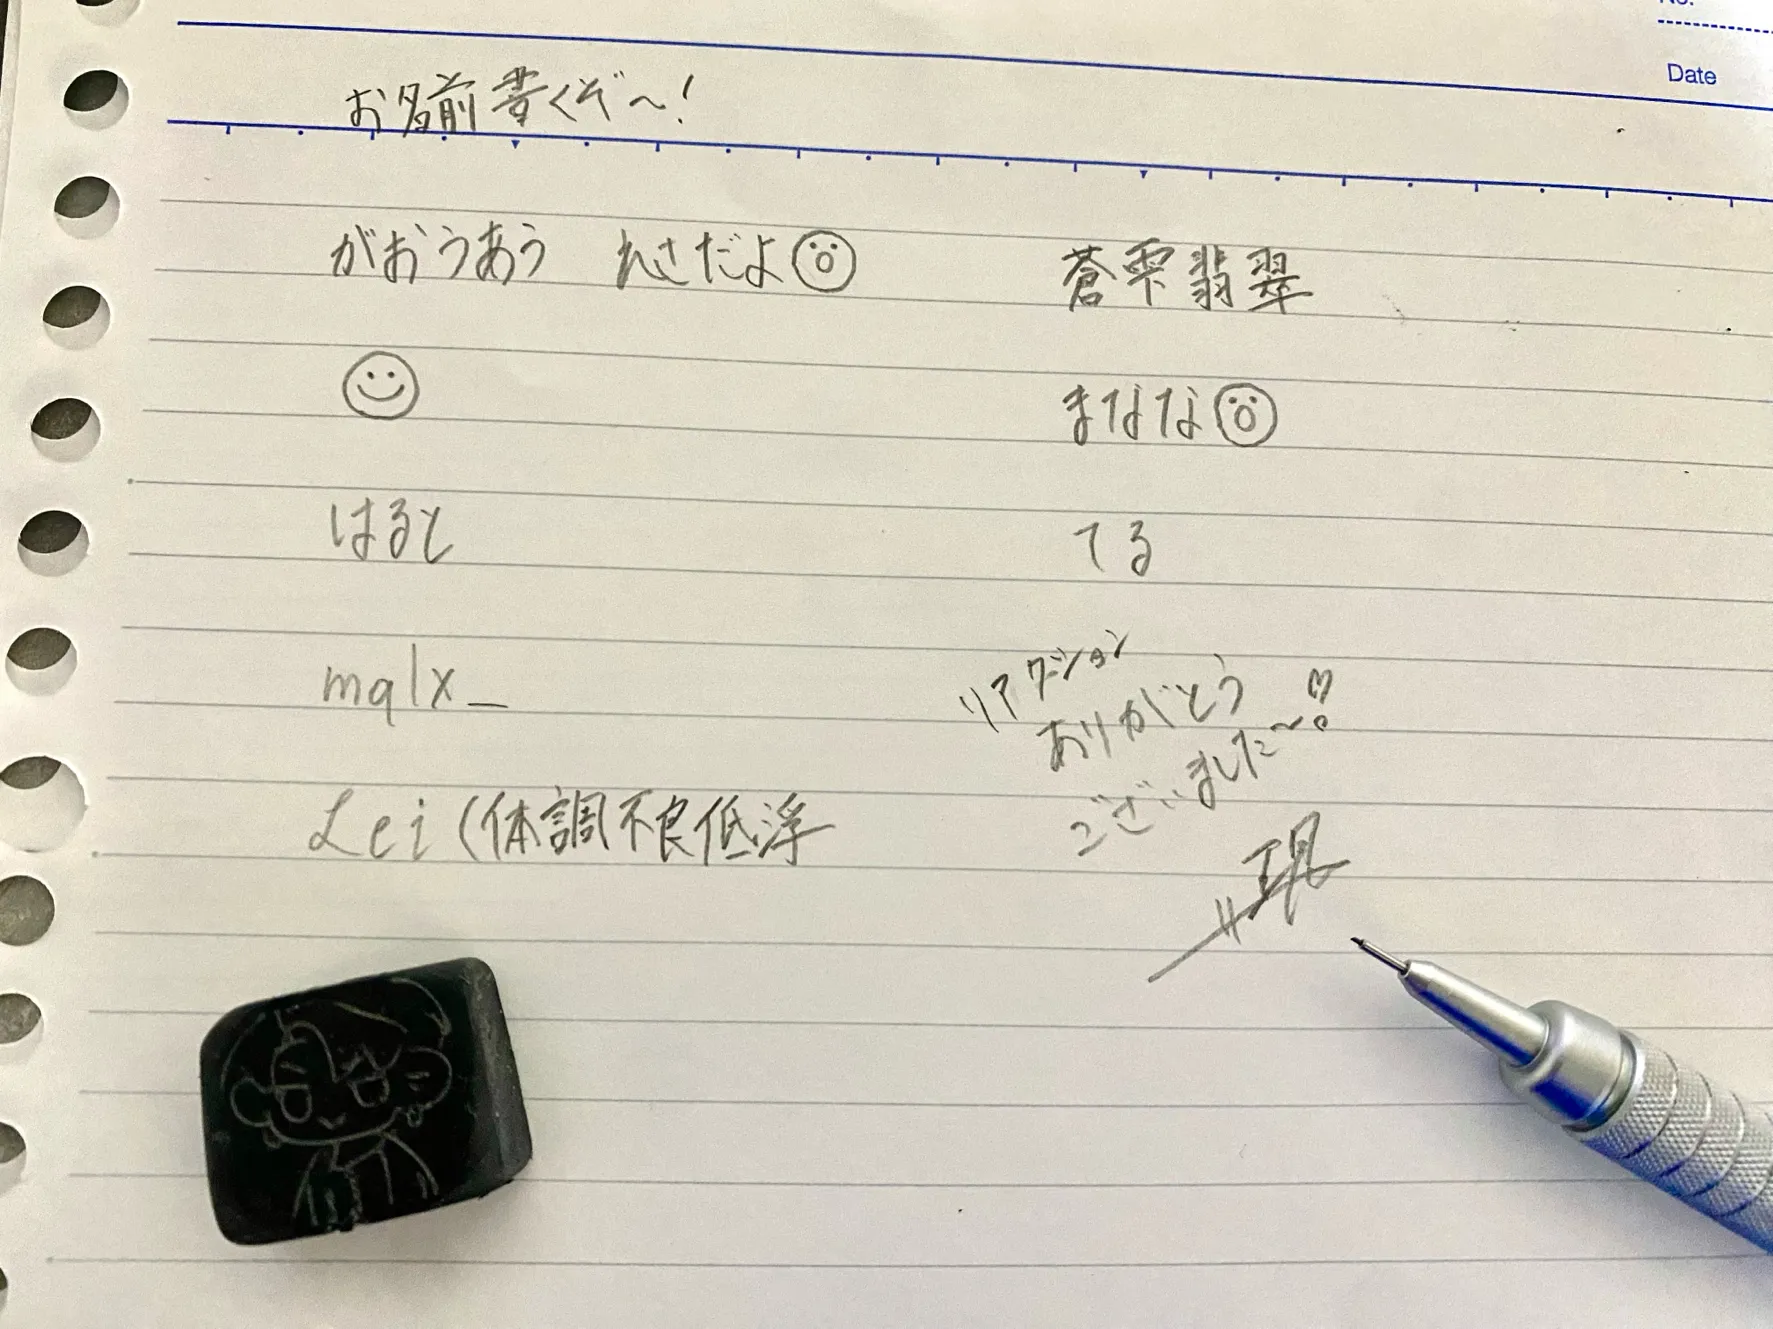 No.
Date
お名前書くぞ〜!
がおうあう れさだよ😮
蒼雫翡翠
☺
まなな😮
はると
てる
mqlx_
リアクション
ありがとう
ございました〜!
Lei(体調不良低浮
現